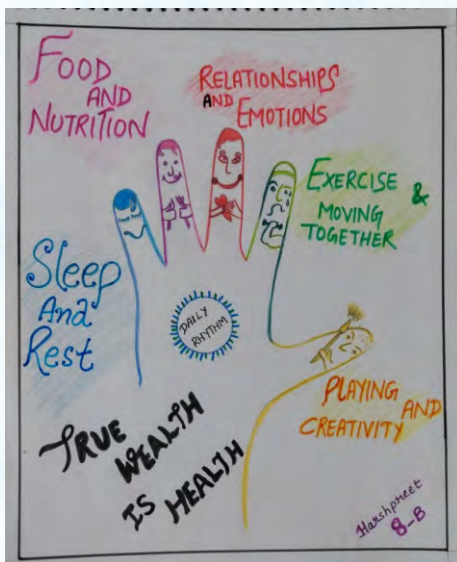 FOOD
AND
NUTRITION
RELATIONSHIPS
AND
EMOTIONS
EXERCISE &
MOVING
TOGETHER
Sleep
And
Rest
DAILY
RHYTHM
PLAYING
AND
CREATIVITY
TRUE
WEALTH
IS HEALTH
Harshpreet
8-B